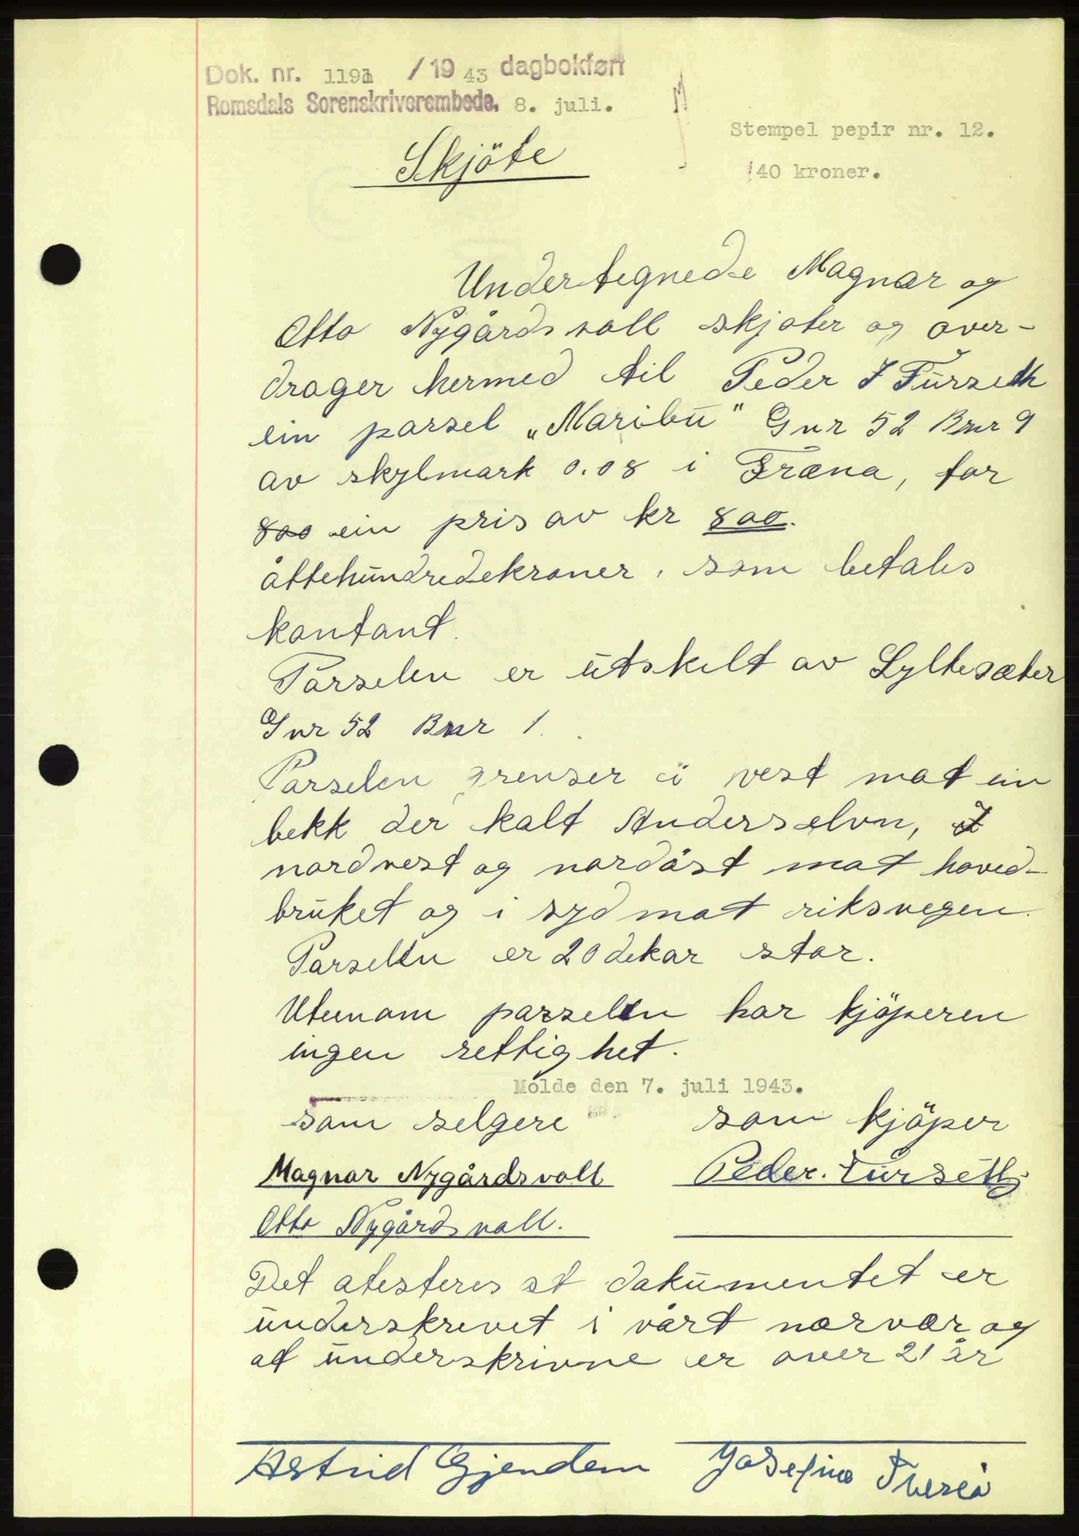 Dok. nr. 1191 / 19 43 dagbokført
Romsdals Sorenskriverembede. 8. juli.
Stempel pepir nr. 12.
40 kroner.
Skjöte
Undertegnede Magnar og
Otto Nygårdsvoll skjøter og over-
drager hermed til Peder J Fürseth
ein parsel „Maribu" Gnr 52 Bnr 9
av skylmark 0.08 i Fræna, for
800 ein pris av kr 800.
åttehundredekroner, som betales
kontant.
Parselen er utskilt av Syltesæter
Gnr 52 Bnr 1.
Parselen grenser i vest mot ein
bekk der kalt Anderselvn, i
nordvest og nordöst mot hoved-
bruket og i syd mot riksvegen.
Parsellen er 20 dekar stor.
Utenom parsellen har kjöperen
ingen rettighet.
Molde den 7. juli 1943.
som selgere som kjöper
Magnar Nygårdsvoll Peder. Fürseth
Otto Nygårdsvoll.
Det atesteres at dokumentet er
underskrevet i vårt nærvær og
at underskrivne er over 21 år
Astrid Gjendem Josefine